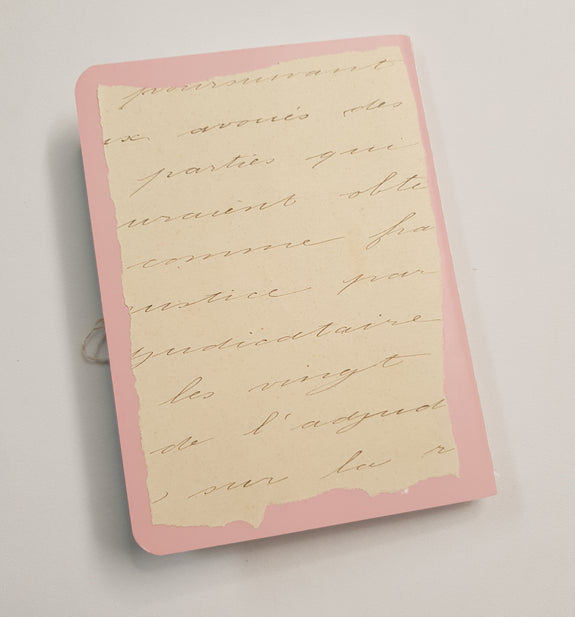 poursuivant
ux avoués des
parties qui
uraient obte
comme fra
ustice par
judicataire
les vingt
de l'adjud
sur la r